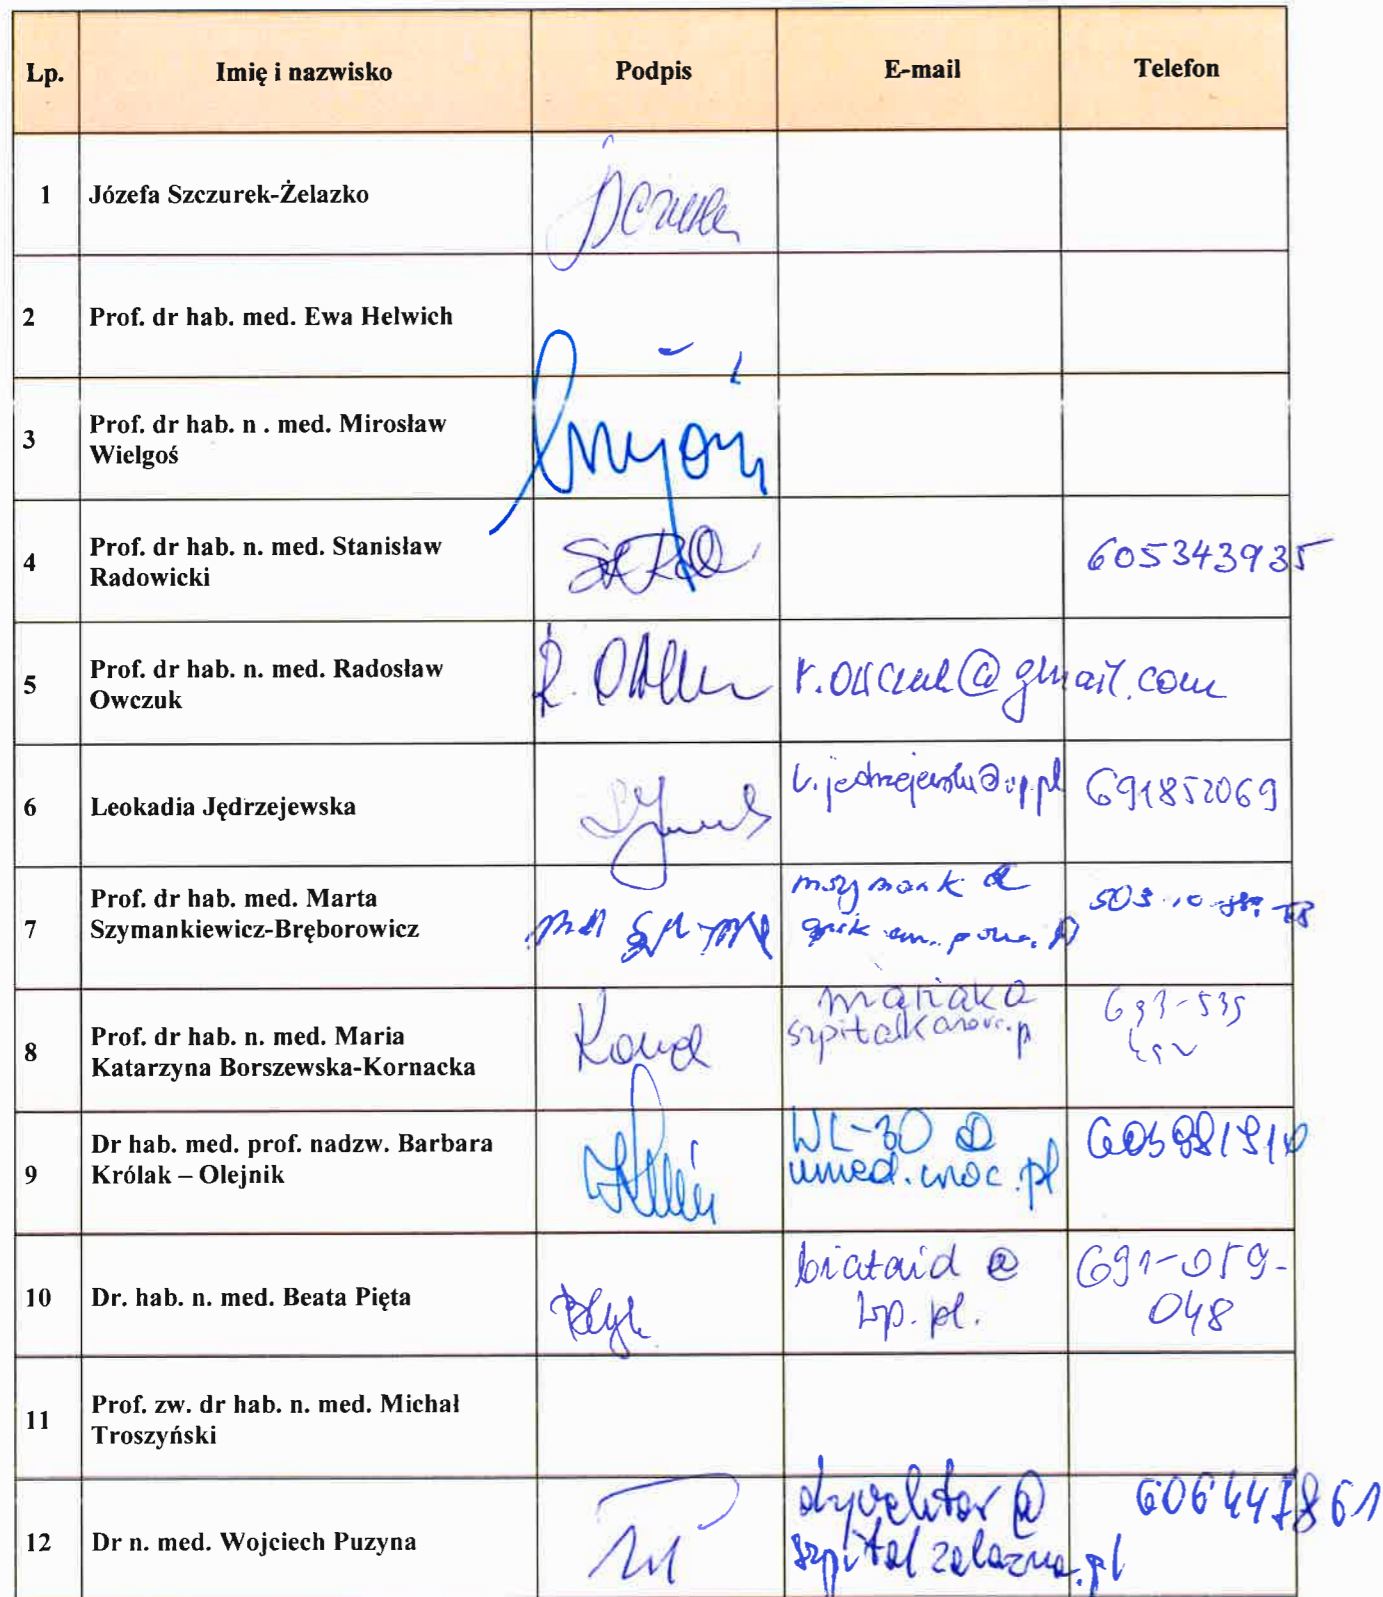 Lp.
Imię i nazwisko
Podpis
E-mail
Telefon
1
Józefa Szczurek-Żelazko
2
Prof. dr hab. med. Ewa Helwich
3
Prof. dr hab. n . med. Mirosław
Wielgoś
4
Prof. dr hab. n. med. Stanisław
Radowicki
605343935
5
Prof. dr hab. n. med. Radosław
Owczuk
R.
r.owczuk@gmail.com
6
Leokadia Jędrzejewska
l.jedrzejewska@wp.pl
691852069
7
Prof. dr hab. med. Marta
Szymankiewicz-Bręborowicz
8
Prof. dr hab. n. med. Maria
Katarzyna Borszewska-Kornacka
9
Dr hab. med. prof. nadzw. Barbara
Królak – Olejnik
WL-30 @
umed.wroc.pl
10
Dr. hab. n. med. Beata Pięta
@
wp.pl.
691-059-
048
11
Prof. zw. dr hab. n. med. Michał
Troszyński
12
Dr n. med. Wojciech Puzyna
dyrektor @
szpitalzelazna.pl
606447861